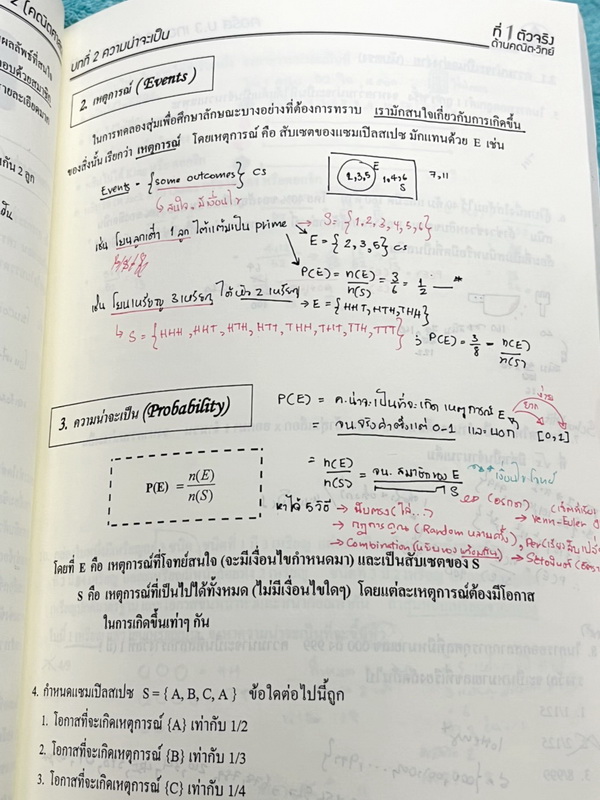 ที่ 1 ตัวจริง
ด้านคณิต-วิทย์
บทที่ 2 ความน่าจะเป็น
2. เหตุการณ์ (Events)
ในการทดลองสุ่มเพื่อศึกษาลักษณะบางอย่างที่ต้องการทราบ เรามักสนใจเกี่ยวกับการเกิดขึ้น
ของสิ่งนั้น เรียกว่า เหตุการณ์ โดยเหตุการณ์ คือ สับเซตของแซมเปิลสเปซ มักแทนด้วย E เช่น
Events = {some outcomes} CS
2,3,5 E 1,4,6 S 7,11
สนใจ, มีเงื่อนไข
เช่น โยนลูกเต๋า 1 ลูก ได้แต้มเป็น prime → S = {1,2,3,4,5,6}
E = {2,3,5} CS
P(E) = n(E)/n(S) = 3/6 = 1/2
เช่น โยนเหรียญ 3 เหรียญ ได้หัว 2 เหรียญ → E = {HHT, HTH, THH}
S = {HHH, HHT, HTH, HTT, THH, THT, TTH, TTT} ; P(E) = 3/8 = n(E)/n(S)
3. ความน่าจะเป็น (Probability)
P(E) = n(E)/n(S)
P(E) = ค.น่าจะเป็นที่จะเกิด เหตุการณ์ E
= จน.จริงค่าตั้งแต่ 0-1 [0,1]
= n(E)/n(S) = จน. สมาชิกของ E / S
หาได้ 5 วิธี → นับตรง
→ Venn-Euler
→ กฎการคูณ (Random หลายครั้ง)
→ Combination
โดยที่ E คือ เหตุการณ์ที่โจทย์สนใจ (จะมีเงื่อนไขกำหนดมา) และเป็นสับเซตของ S
S คือ เหตุการณ์ที่เป็นไปได้ทั้งหมด (ไม่มีเงื่อนไขใดๆ) โดยแต่ละเหตุการณ์ต้องมีโอกาส
ในการเกิดขึ้นเท่าๆ กัน
4. กำหนดแซมเปิลสเปซ S = { A, B, C, A } ข้อใดต่อไปนี้ถูก
1. โอกาสที่จะเกิดเหตุการณ์ {A} เท่ากับ 1/2
2. โอกาสที่จะเกิดเหตุการณ์ {B} เท่ากับ 1/3
3. โอกาสที่จะเกิดเหตุการณ์ {C} เท่ากับ 1/4